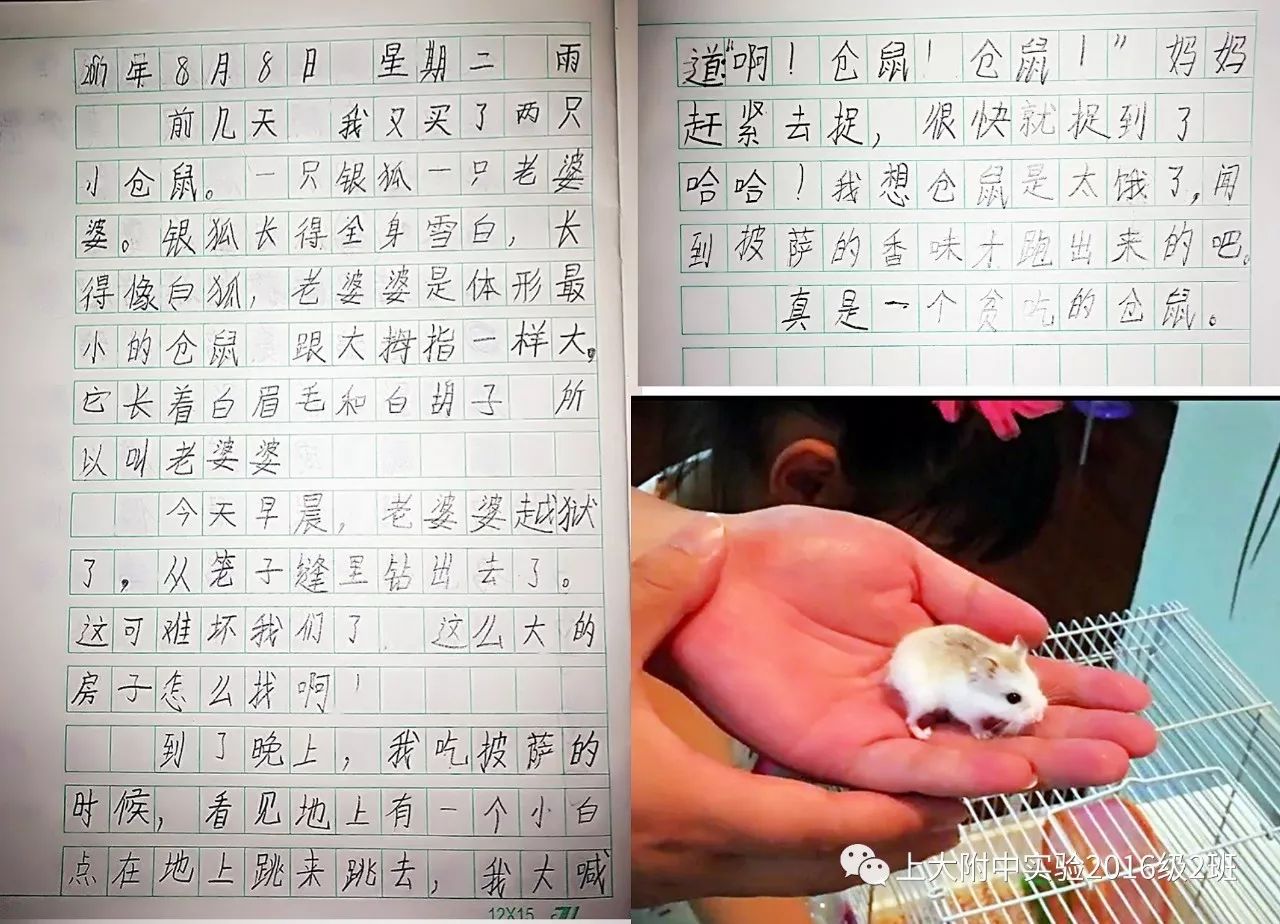 2017年8月8日 星期二 雨
前几天 我又买了两只
小仓鼠。一只银狐一只老婆
婆。银狐长得全身雪白，长
得像白狐，老婆婆是体形最
小的仓鼠 跟大拇指一样大。
它长着白眉毛和白胡子 所
以叫老婆婆
今天早晨，老婆婆越狱
了，从笼子缝里钻出去了。
这可难坏我们了 这么大的
房子怎么找啊！
到了晚上，我吃披萨的
时候，看见地上有一个小白
点在地上跳来跳去，我大喊
12X15
道:“啊！仓鼠！仓鼠！”妈妈
赶紧去捉，很快就捉到了
哈哈！我想仓鼠是太饿了，闻
到披萨的香味才跑出来的吧。
真是一个贫吃的仓鼠。
上大附中实验2016级2班